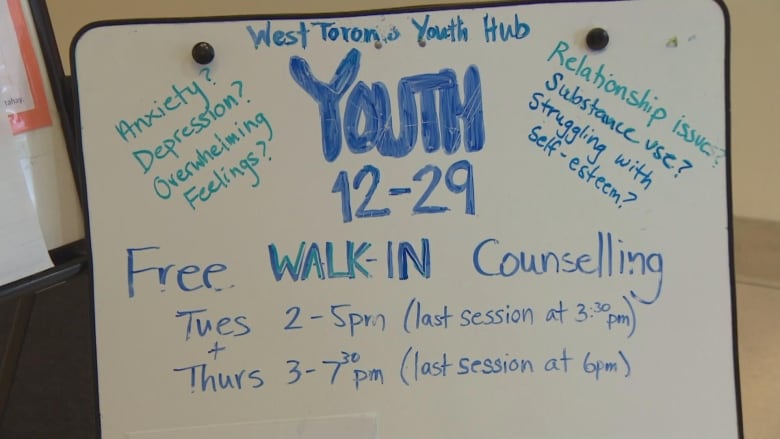 West Toronto Youth Hub
Anxiety?
Depression?
Overwhelming
Feelings?
YOUTH
12-29
Relationship issues?
Substance use?
Struggling with
Self-esteem?
Free WALK-IN Counselling
Tues 2-5pm (last session at 3:30pm)
+
Thurs 3-7:30pm (last session at 6pm)